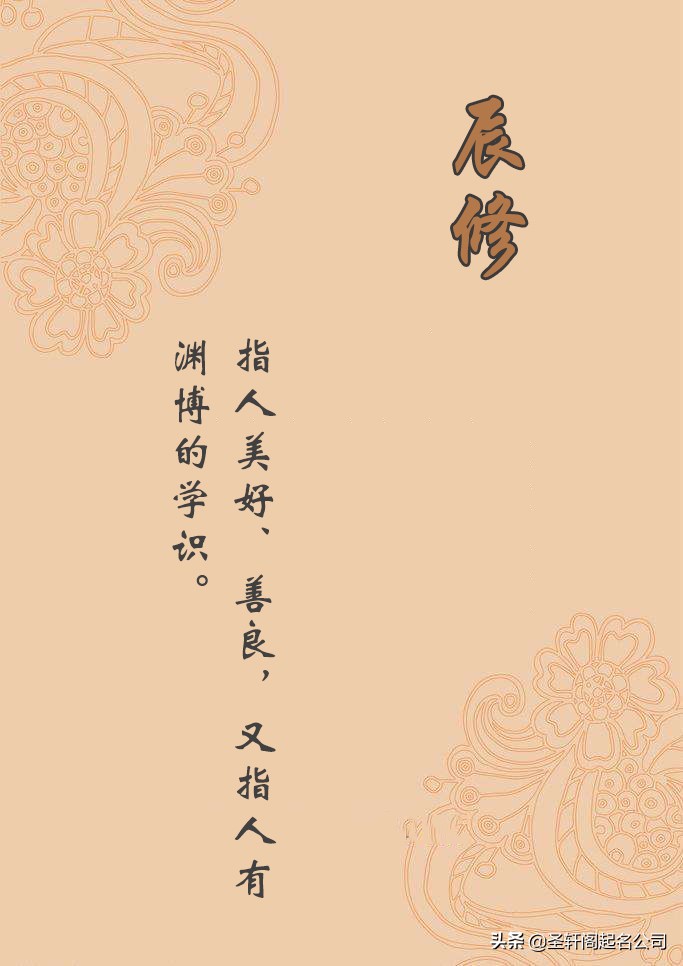 辰修
指人美好、善良，又指人有
渊博的学识。
头条 @圣轩阁起名公司